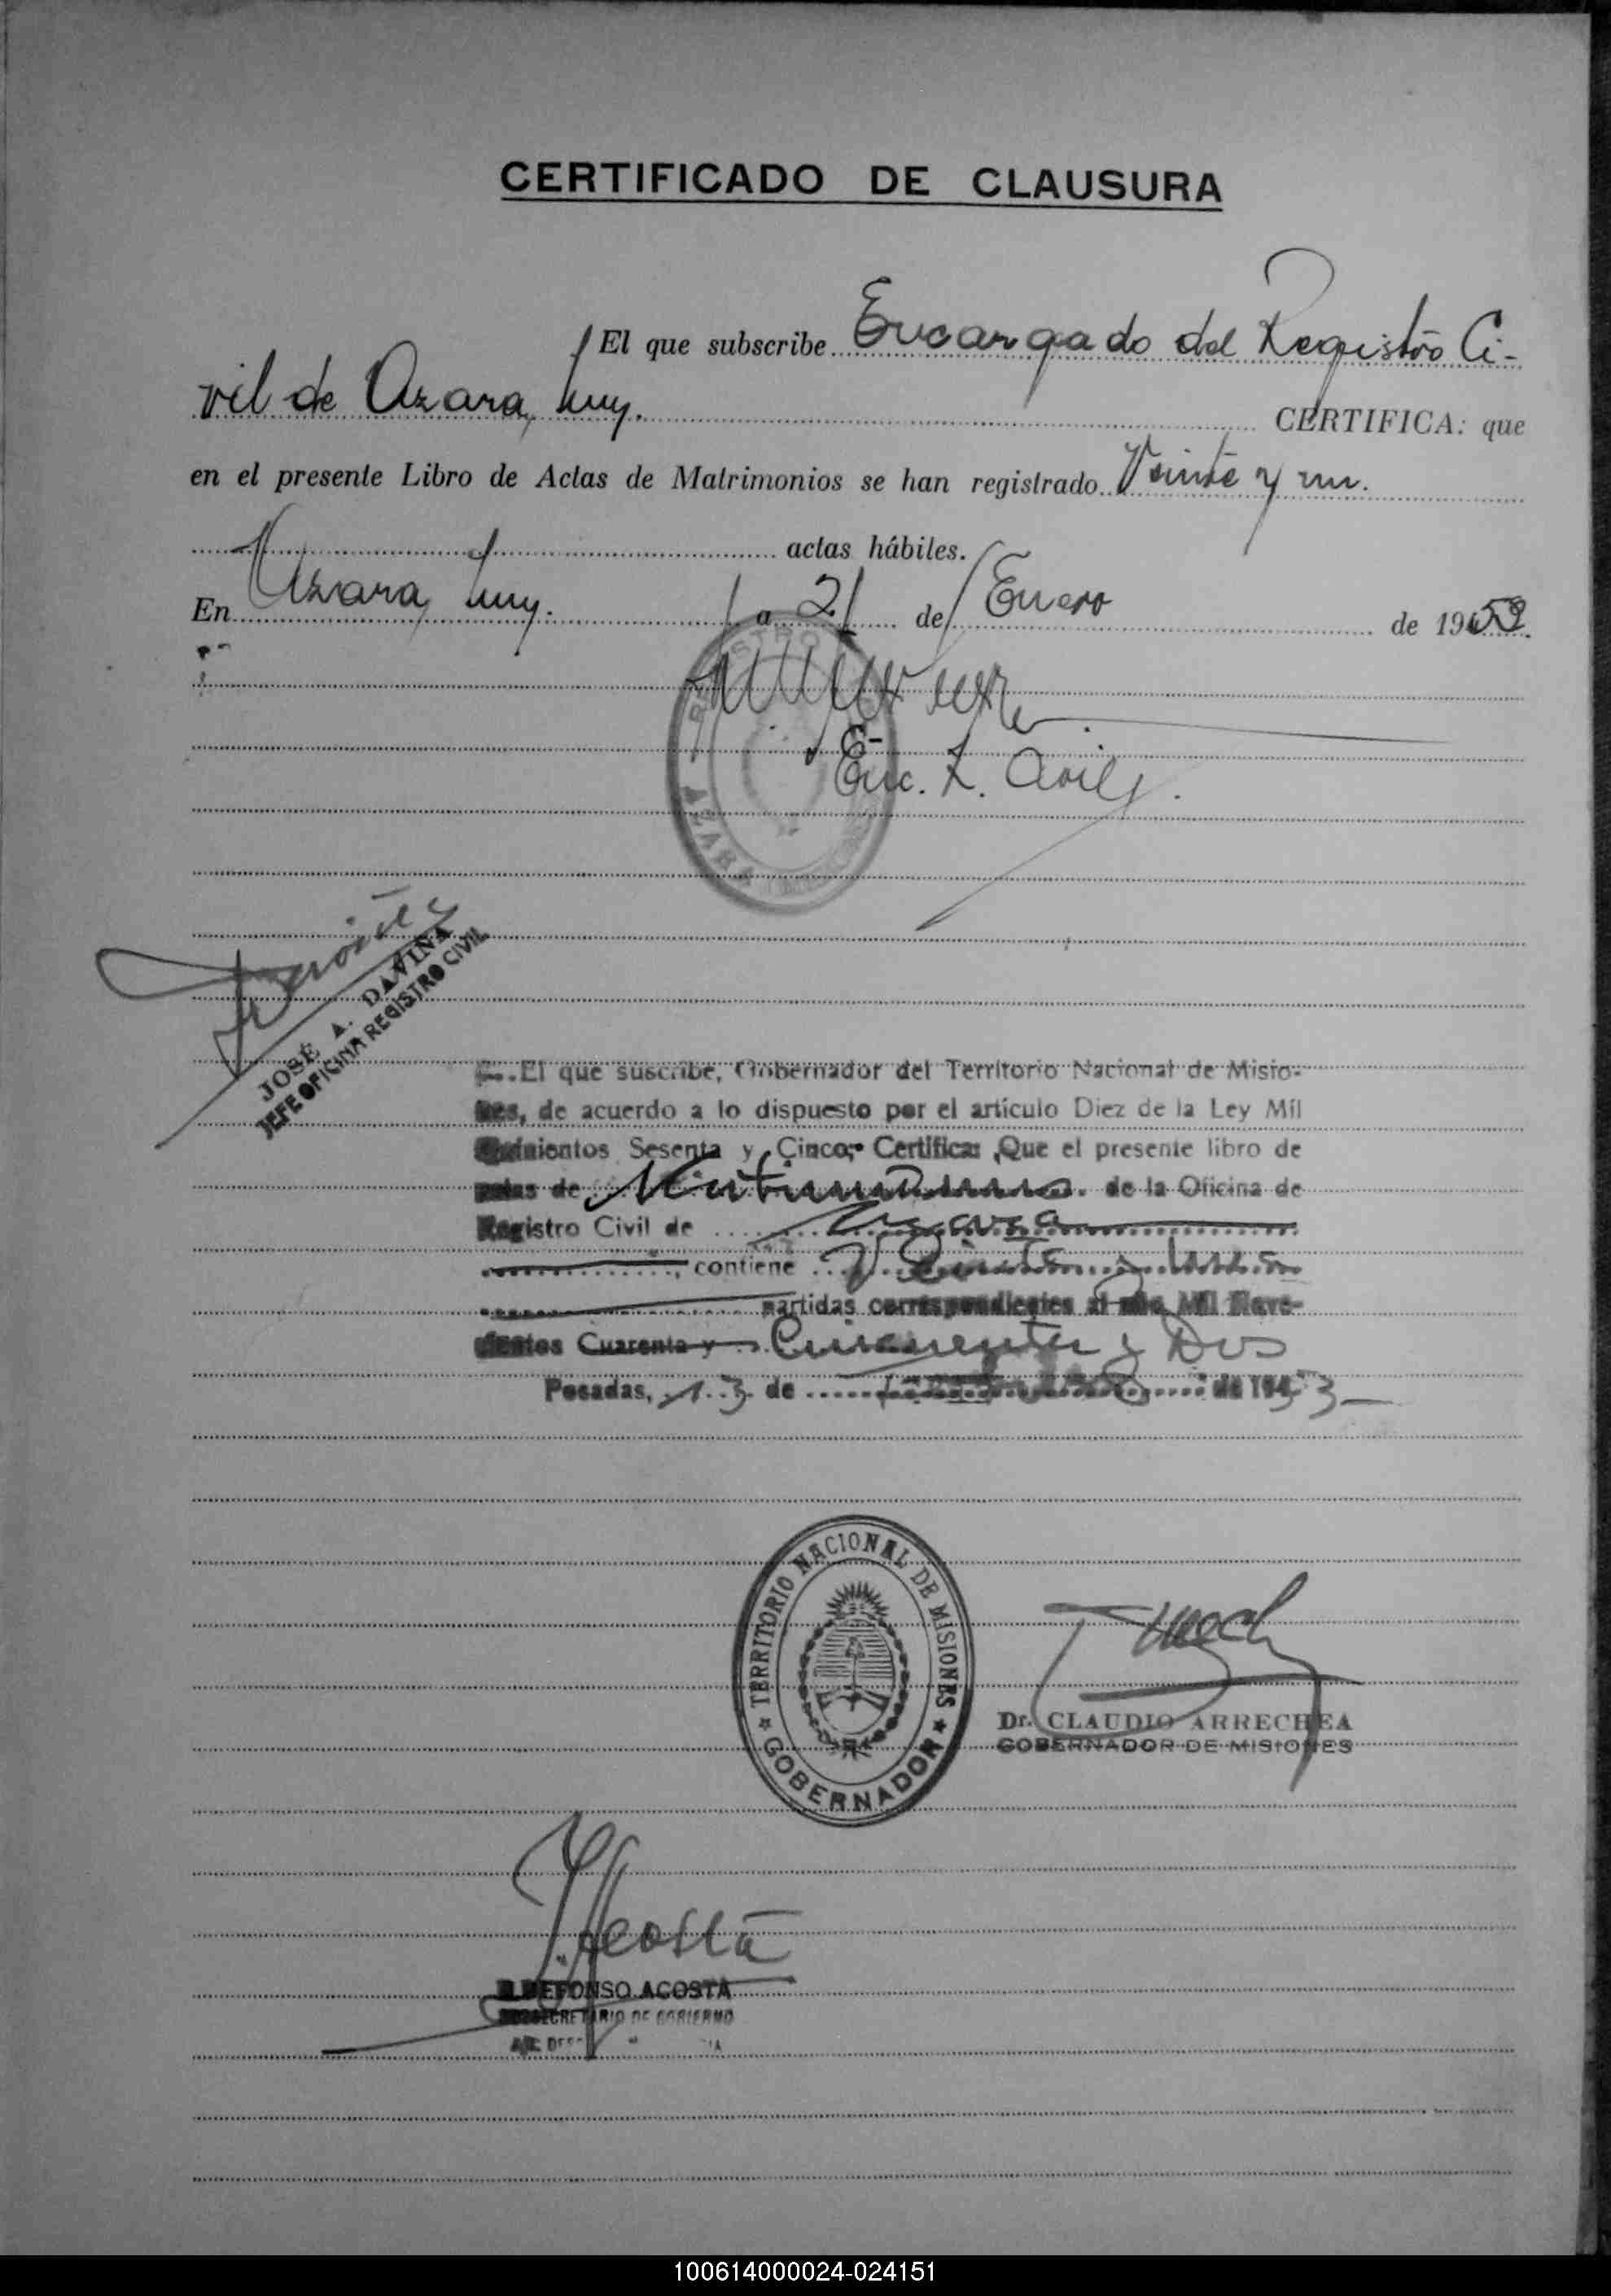 CERTIFICADO DE CLAUSURA
El que subscribe Encargado del Registro Ci-
vil de Azara,
CERTIFICA: que
en el presente Libro de Actas de Matrimonios se han registrado Veinte y un.
actas hábiles.
En Azara, a 21 de Enero de 1953
Enc. Avila
JOSÉ A. DAVIÑA
JEFE OFICINA REGISTRO CIVIL
El que suscribe, Gobernador del Territorio Nacional de Misio-
nes, de acuerdo a lo dispuesto por el artículo Diez de la Ley Mil
Quinientos Sesenta y Cinco; Certifica: Que el presente libro de
actas de Matrimonios de la Oficina de
Registro Civil de Azara
contiene Veinte y
partidas correspondientes al año Mil Nove-
cientos Cuarenta y Cincuenta y Dos
Posadas, 13 de de 1953
TERRITORIO NACIONAL DE MISIONES
GOBERNADOR
Dr. CLAUDIO ARRECHEA
GOBERNADOR DE MISIONES
Acosta
ILDEFONSO ACOSTA
SUBSECRETARIO DE GOBIERNO
100614000024-024151